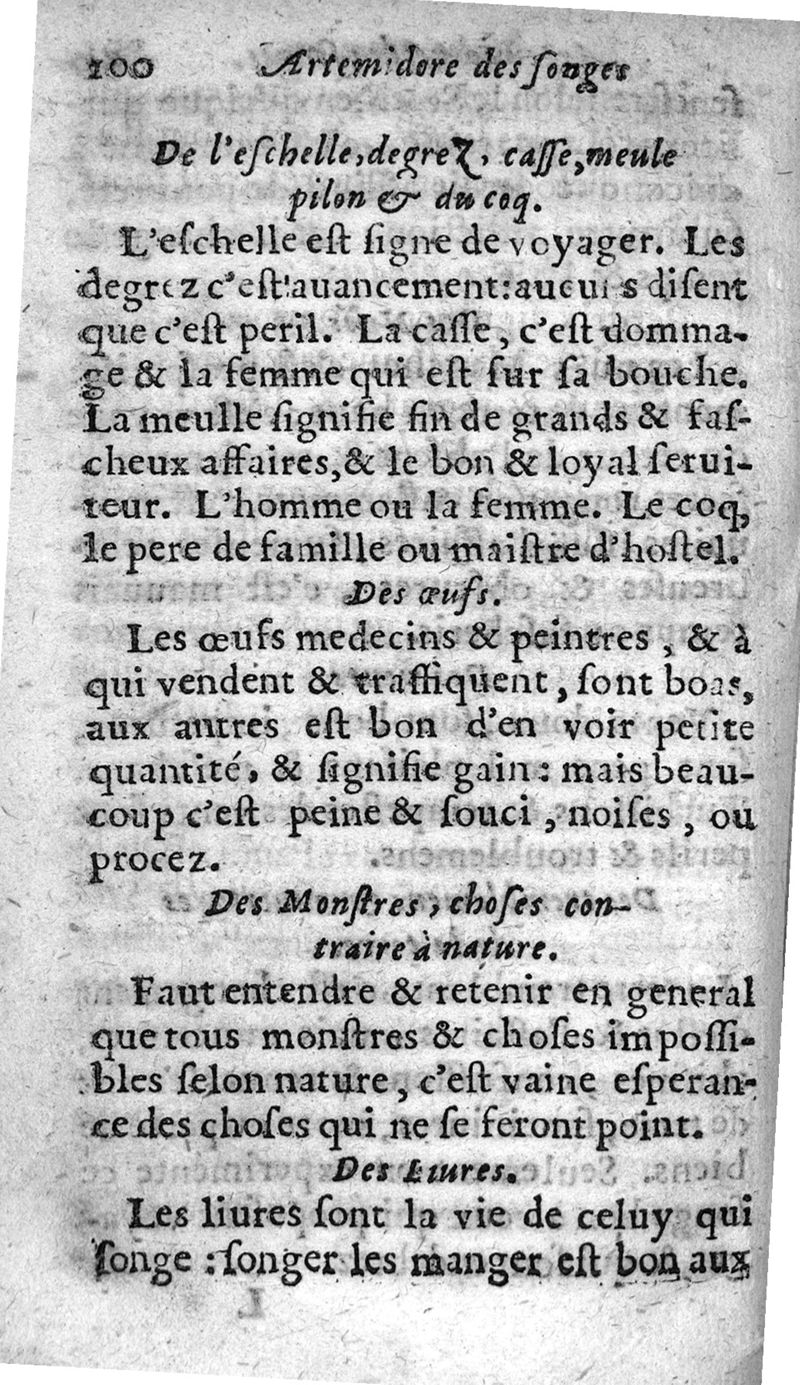 100 Artemidore des ſonges
De l'eſchelle, degrez, caſſe, meule
pilon & du coq.
L'eſchelle eſt ſigne de voyager. Les
degrez c'eſt auancement: aucuns diſent
que c'eſt peril. La caſſe, c'eſt domma-
ge & la femme qui eſt ſur ſa bouche.
La meulle ſignifie fin de grands & faſ-
cheux affaires, & le bon & loyal ſerui-
teur. L'homme ou la femme. Le coq,
le pere de famille ou maiſtre d'hoſtel.
Des œufs.
Les œufs medecins & peintres, & à
qui vendent & traffiquent, ſont bons,
aux autres eſt bon d'en voir petite
quantité, & ſignifie gain: mais beau-
coup c'eſt peine & ſouci, noiſes, ou
procez.
Des Monſtres, choſes con-
traire à nature.
Faut entendre & retenir en general
que tous monſtres & choſes impoſſi-
bles ſelon nature, c'eſt vaine eſperan-
ce des choſes qui ne ſe feront point.
Des Liures.
Les liures ſont la vie de celuy qui
ſonge: ſonger les manger eſt bon aux